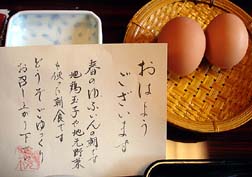 おはよう
ございます
春のゆふいんの朝です
地鶏玉子や地元野菜
を使った朝食です
どうぞごゆっくり
お召し上がり下さい